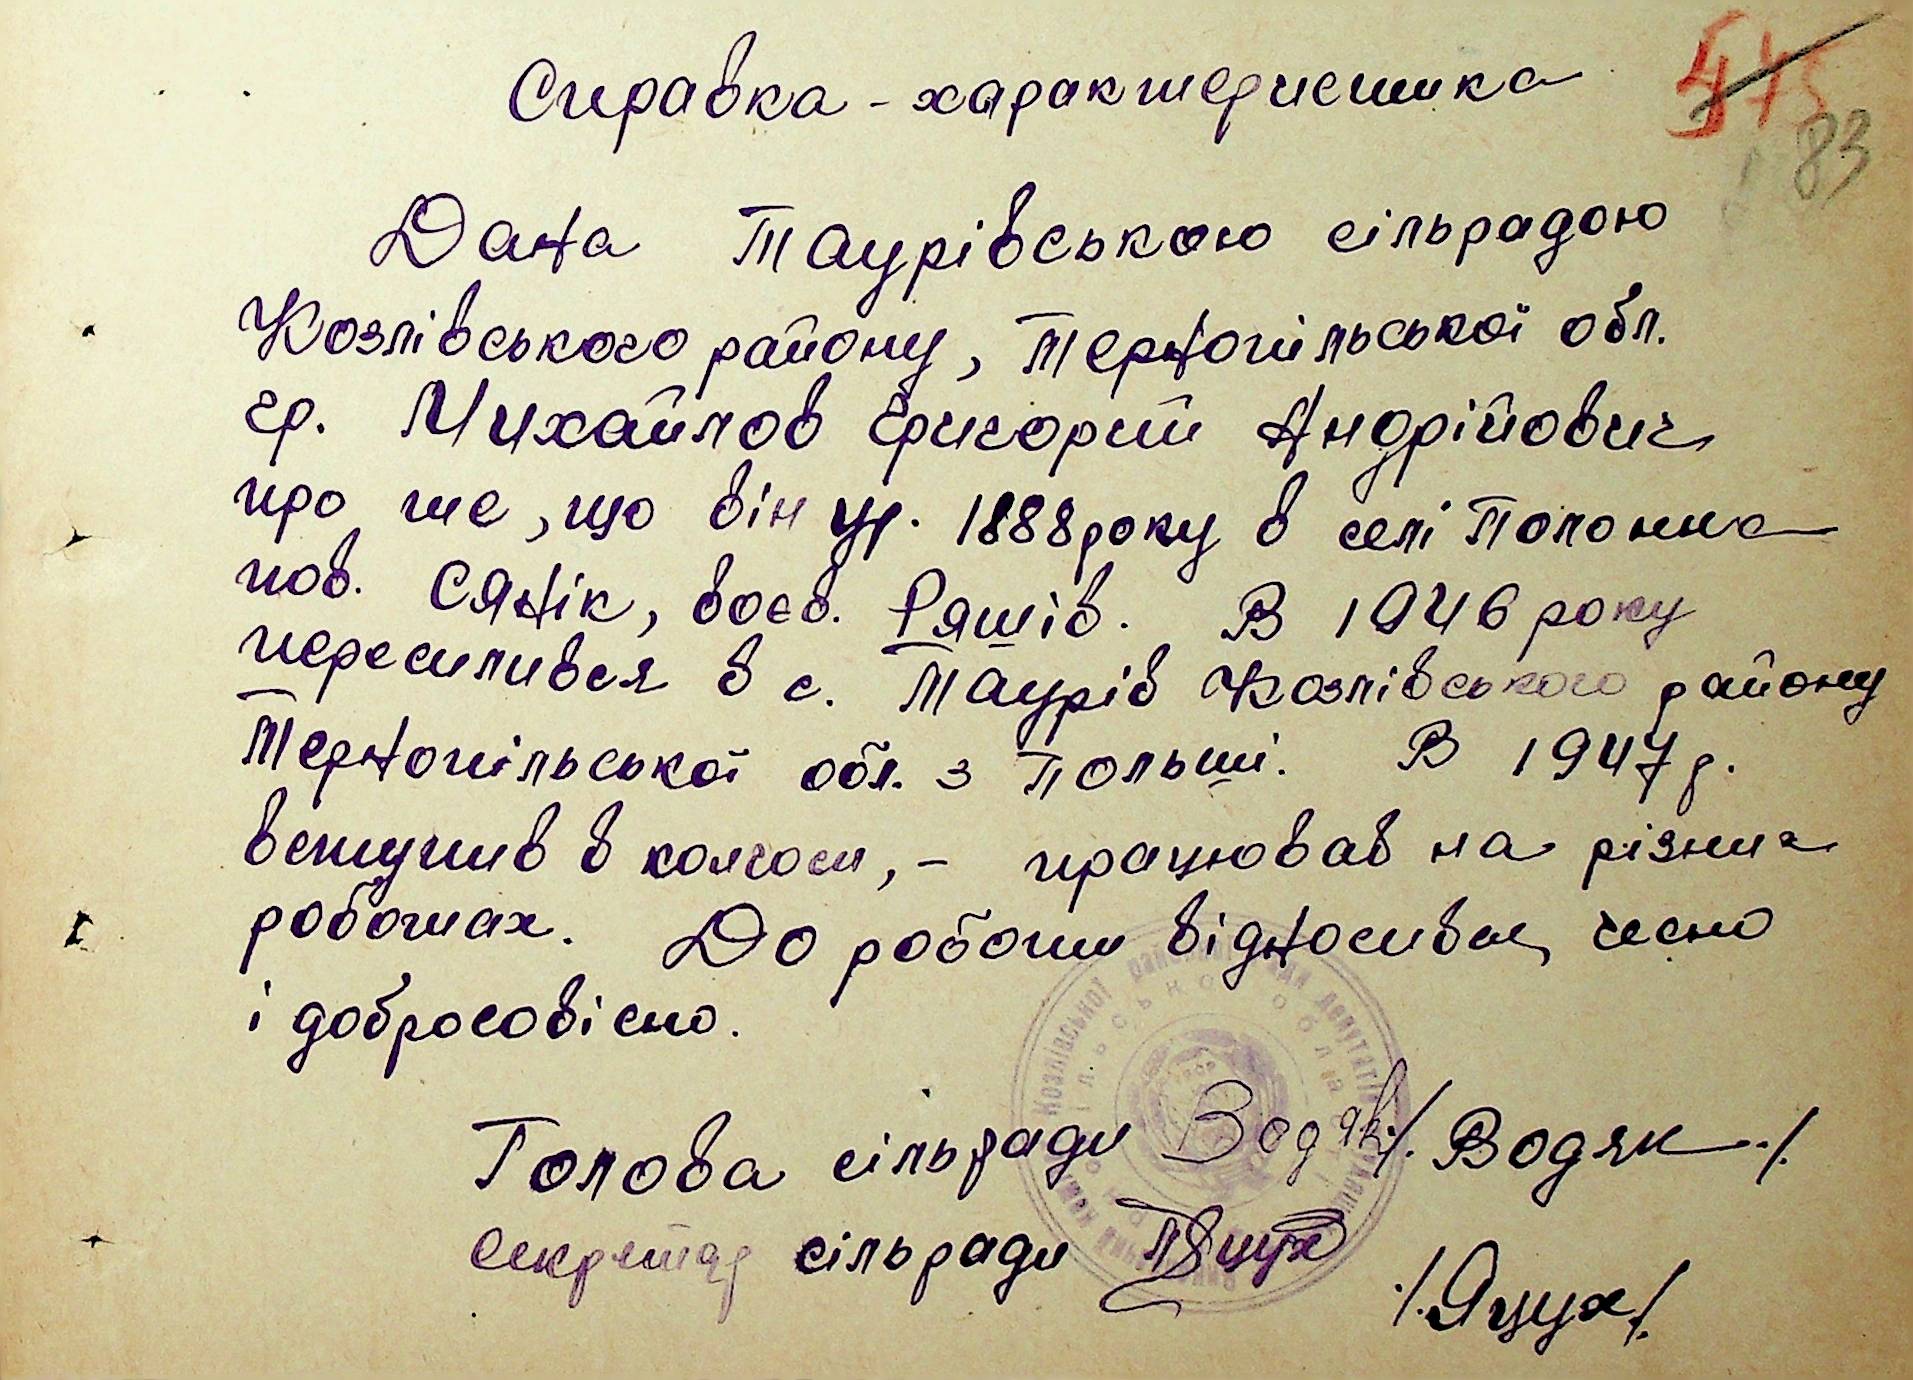 475
83
Справка - характеристика
Дана Таурівською сільрадою
Козлівського району, Тернопільської обл.
гр. Михайлов Григорий Андрійович
про те, що він ур. 1888 року в селі Полонна
пов. Сянік, воєв. Ряшів. В 1946 року
переселився в с. Таурів Козлівського району
Тернопільської обл. з Польші. В 1947 р.
вступив в колгосп, - працював на різних
роботах. До роботи відносився чесно
і добросовісно.
Голова сільради Водяк /. Водяк ./
Секретар сільради Яцух
/. Яцух ./
Козлівської районної Ради депутатів